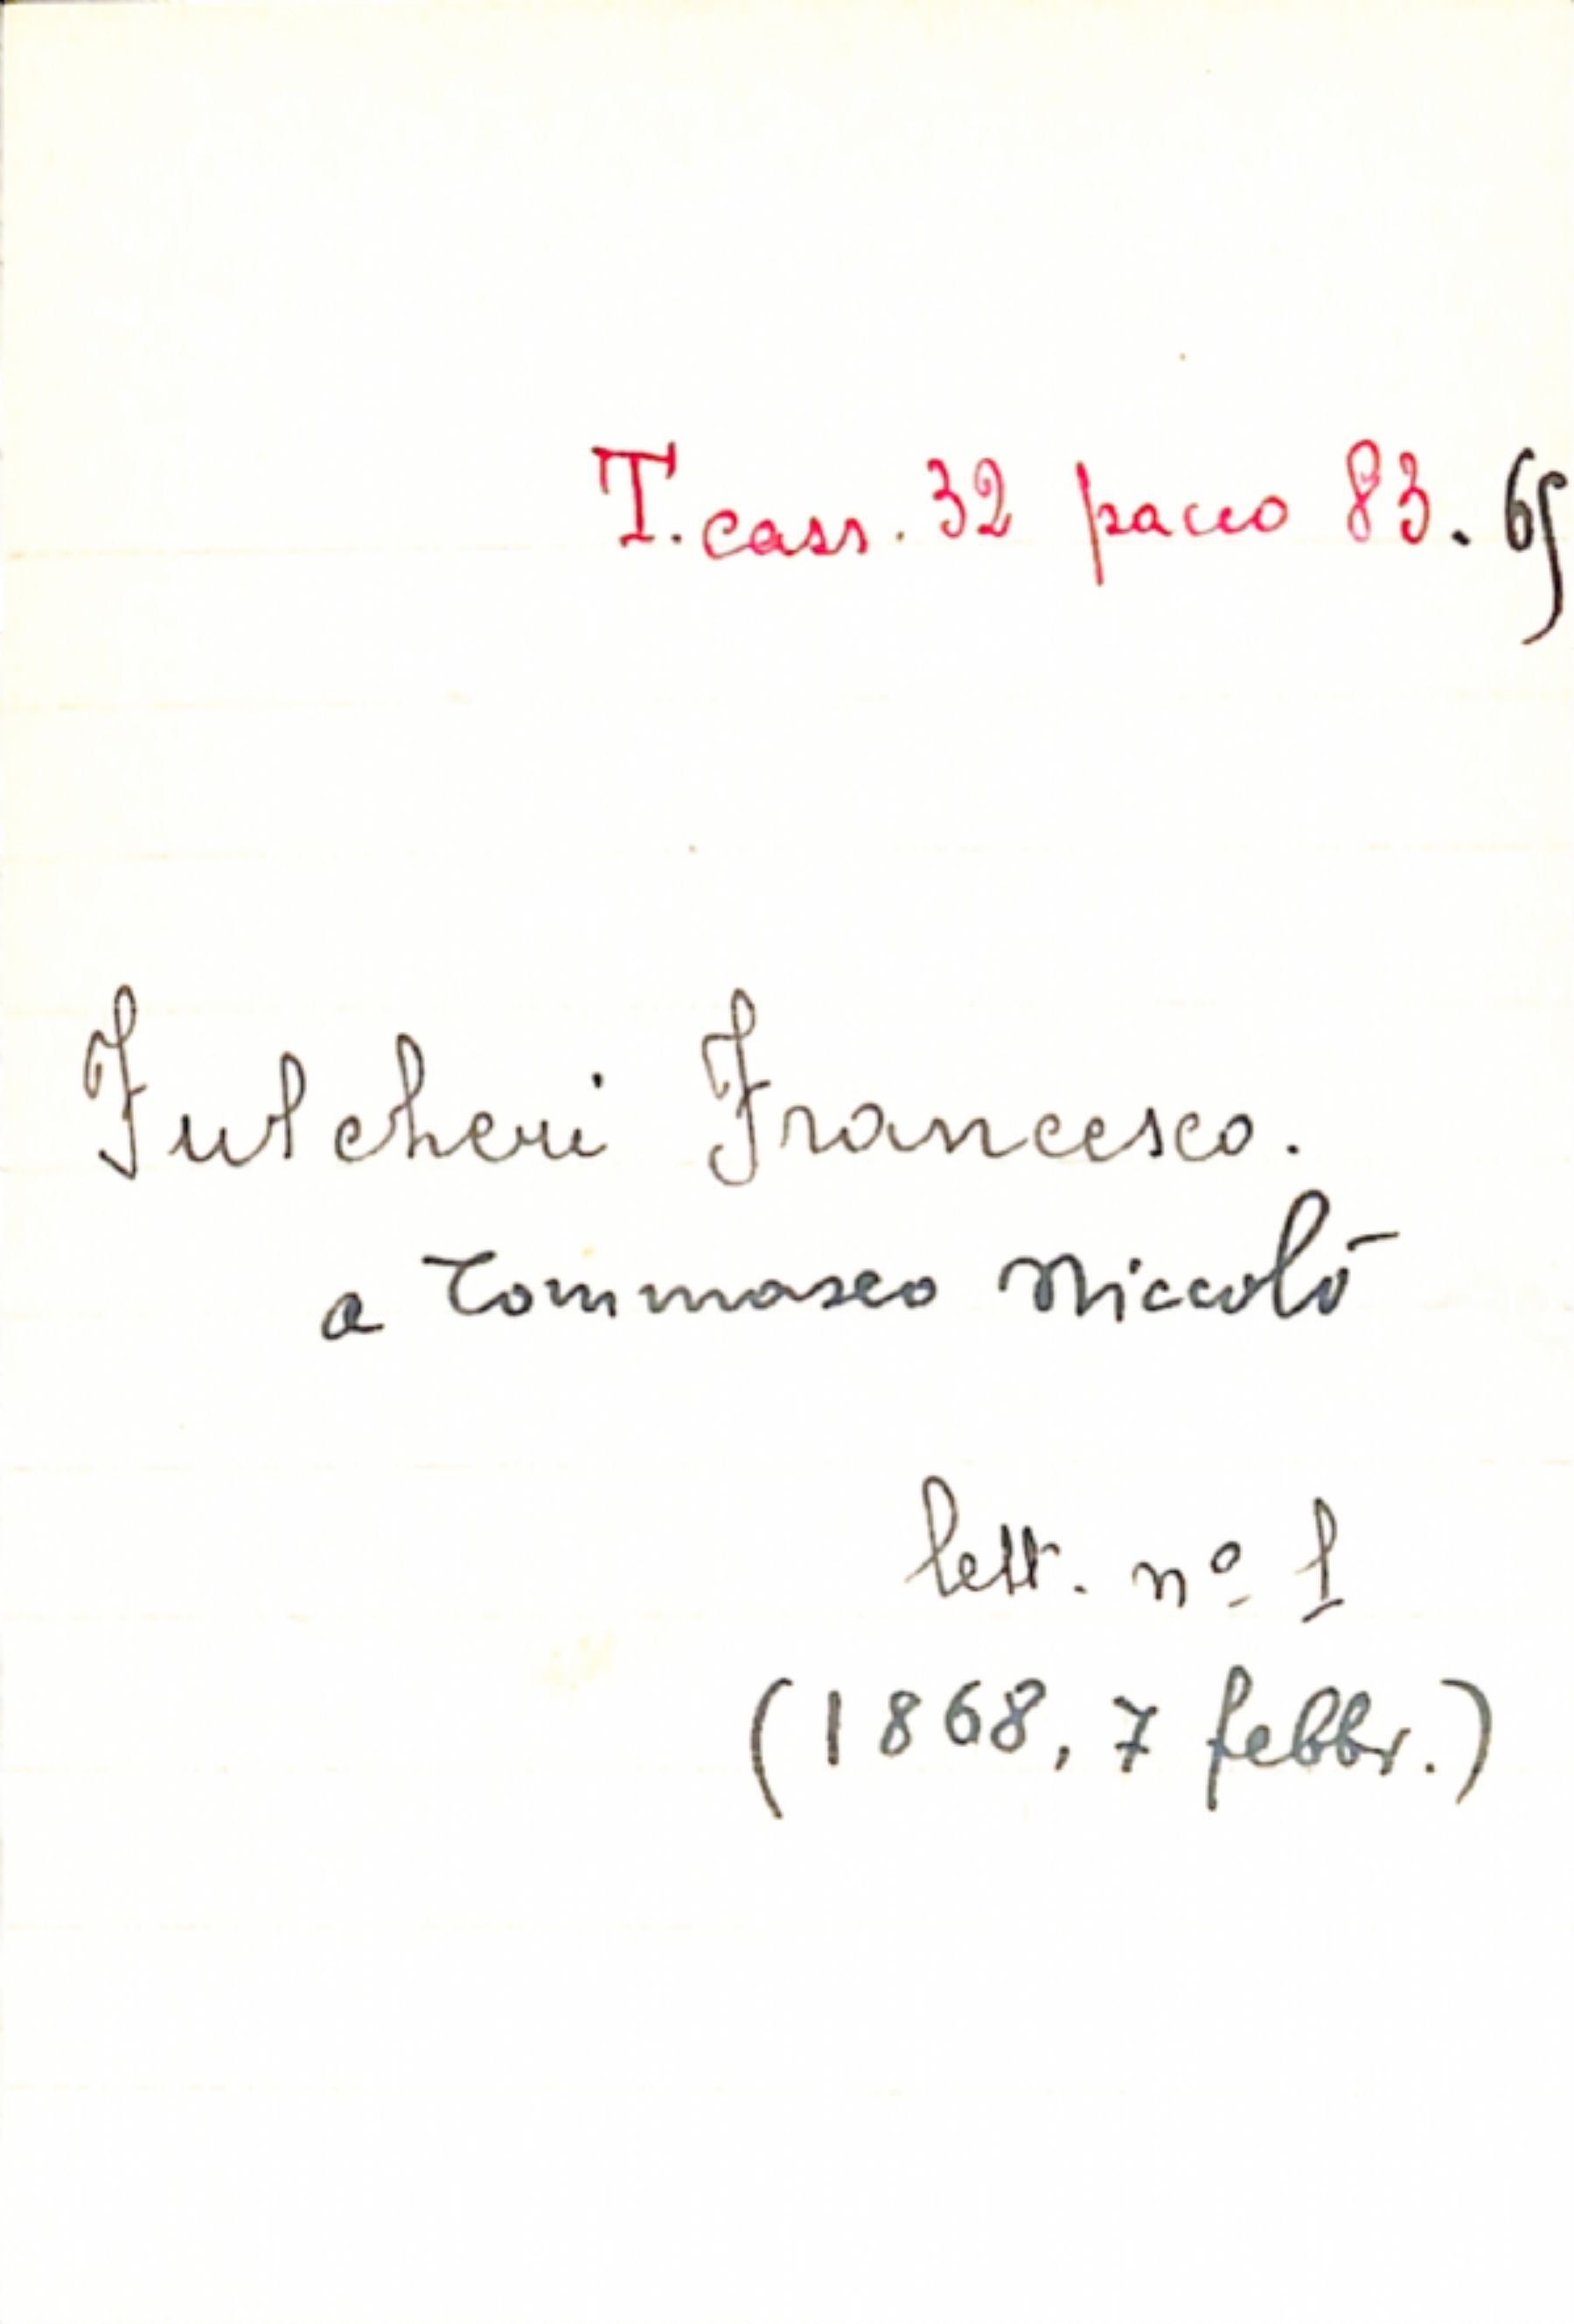 T. cass. 32 pacco 83. 65
Fulcheri Francesco.
a Tommaseo Niccolò
lett. nº 1
(1868, 7 febbr.)